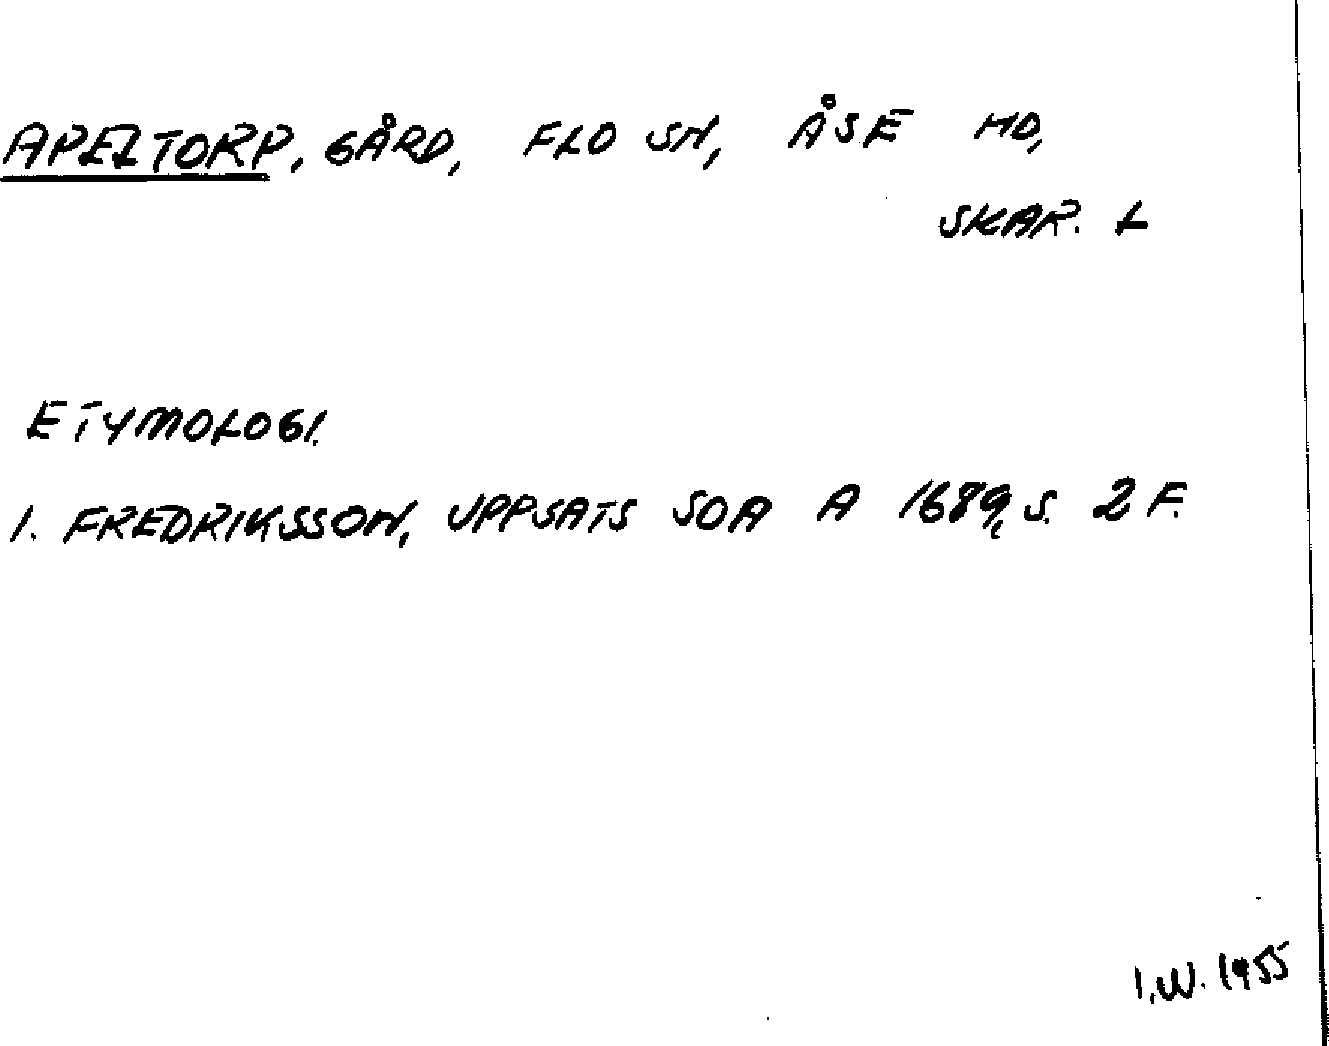 APELTORP, GÅRD, FLO SN, ÅSE HD,
SKAR. L
ETYMOLOGI.
I. FREDRIKSSON, UPPSATS SOA A 1689, S. 2 F.
I.W. 1955